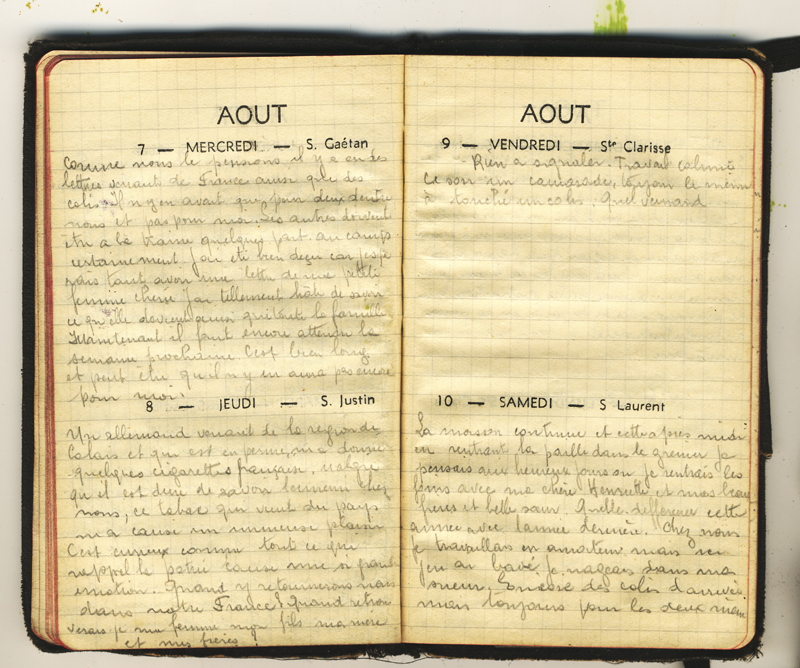 AOUT
7 — MERCREDI — S. Gaétan
Comme nous le pensions il y a eu des
lettres venants de France ainsi que des
colis. Il n'y en avait que pour deux d'entre
nous et pas pour moi. Les autres doivent
être a la traine quelques part au camps
certainement. J'ai été bien déçu car j'espé
rais tant avoir une lettre de ma petite
femme cherie j'ai tellement hâte de savoir
ce qu'elle devient ainsi que toute la famille
Maintenant il faut encore attendre la
semaine prochaine. C'est bien long
et peut être qu'il n'y en aura pas encore
pour moi.
8 — JEUDI — S. Justin
Un allemand venant de la région de
Calais et qui est en permission a donné
quelques cigarettes français, malgré
qu'il est dure de savoir l'ennemi chez
nous, ce tabac qui vient du pays
m'a cause un immense plaisir
C'est curieux comme tout ce qui
rappel la patrie cause une si grande
emotion. Quand y retournerons nous
dans notre France? Quand retrou
verais-je ma femme mon fils ma mère
et mes frères?
AOUT
9 — VENDREDI — Ste Clarisse
Rien a signaler. Travail
Ce soir un camarade, toujours le même
à touché un colis. Quel veinard
10 — SAMEDI — S Laurent
La moisson continue et cette après midi
en rentrant la paille dans le grenier je
pensais aux heureux jours ou je rentrais les
foins avec ma chère Henriette et mes beaux
frères et belle sœur. Quelle différence cette
année avec l'année dernière. Chez nous
je travaillais en amateur mais ici
j'en ai bavé, je nageais dans ma
sueur. Encore des colis d'arrivés
mais toujours pour les deux même